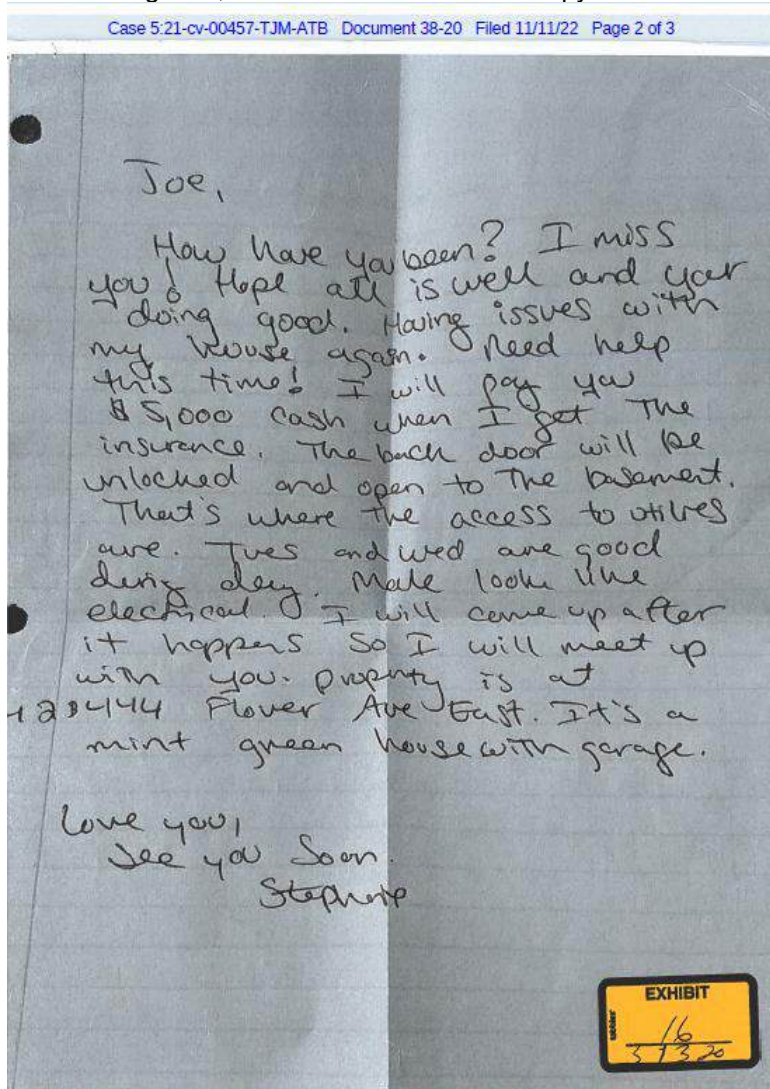 Case 5:21-cv-00457-TJM-ATB Document 38-20 Filed 11/11/22 Page 2 of 3
Joe,
How have you been? I miss
you! Hope all is well and your
doing good. Having issues with
my house again. Need help
this time! I will pay you
$5,000 cash when I get The
insurance. The back door will be
unlocked and open to The basement.
That's where the access to
are. Tues and wed are good
day. Make look like
electrical. I will come up after
it happens So I will meet up
with you. property is at
Plover Ave East. It's a
mint green house with garage.
Love you,
See you Soon.
Stephanie
EXHIBIT
16